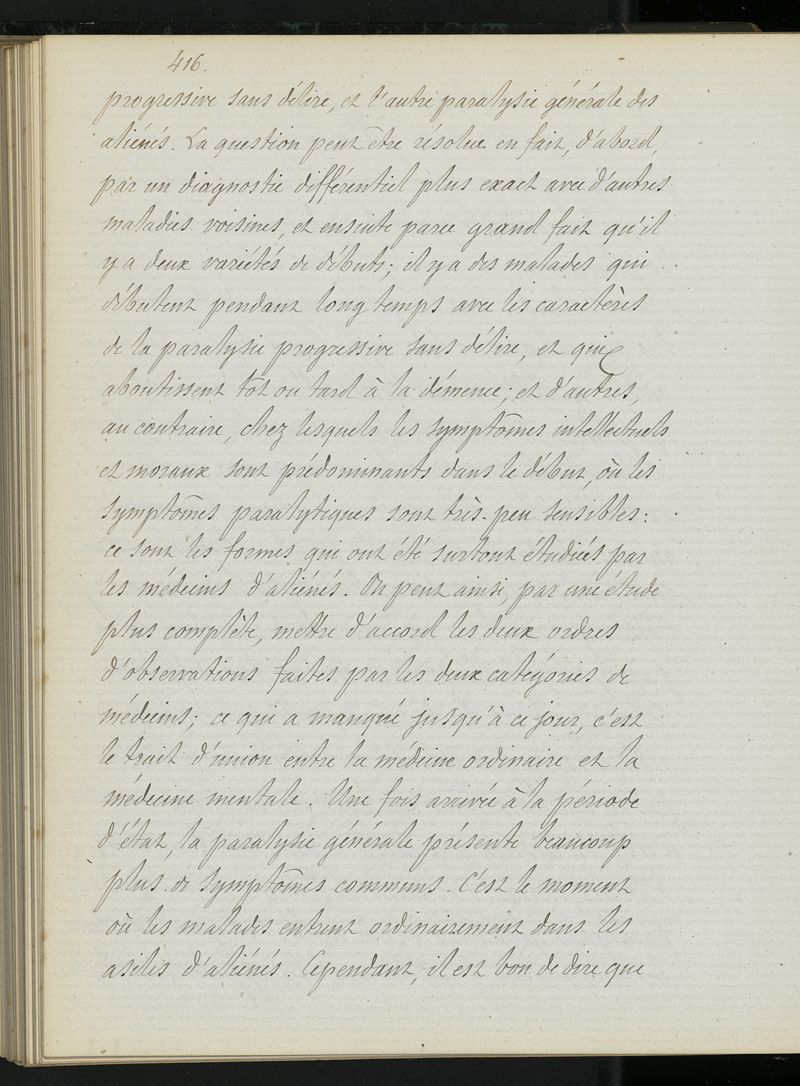 416.
progressive sans délire, et l'autre paralysie générale des
aliénés. La question peut être résolue en fait, d'abord,
par un diagnostic différentiel plus exact avec d'autres
maladies voisines, et ensuite par ce grand fait qu'il
y a deux variétés de débuts; il y a des malades qui
débutent pendant longtemps avec les caractères
de la paralysie progressive sans délire, et qui
aboutissent tôt ou tard à la démence; et d'autres,
au contraire, chez lesquels les symptômes intellectuels
et moraux sont prédominants dans le début, où les
symptômes paralytiques sont très-peu sensibles:
ce sont les formes qui ont été surtout étudiées par
les médecins d'aliénés. On peut ainsi, par une étude
plus complète, mettre d'accord les deux ordres
d'observations faites par les deux catégories de
médecins; ce qui a manqué jusqu'à ce jour, c'est
le trait d'union entre la médecine ordinaire et la
médecine mentale. Une fois arrivée à la période
d'état, la paralysie générale présente beaucoup
plus de symptômes communs. C'est le moment
où les malades entrent ordinairement dans les
asiles d'aliénés. Cependant, il est bon de dire que